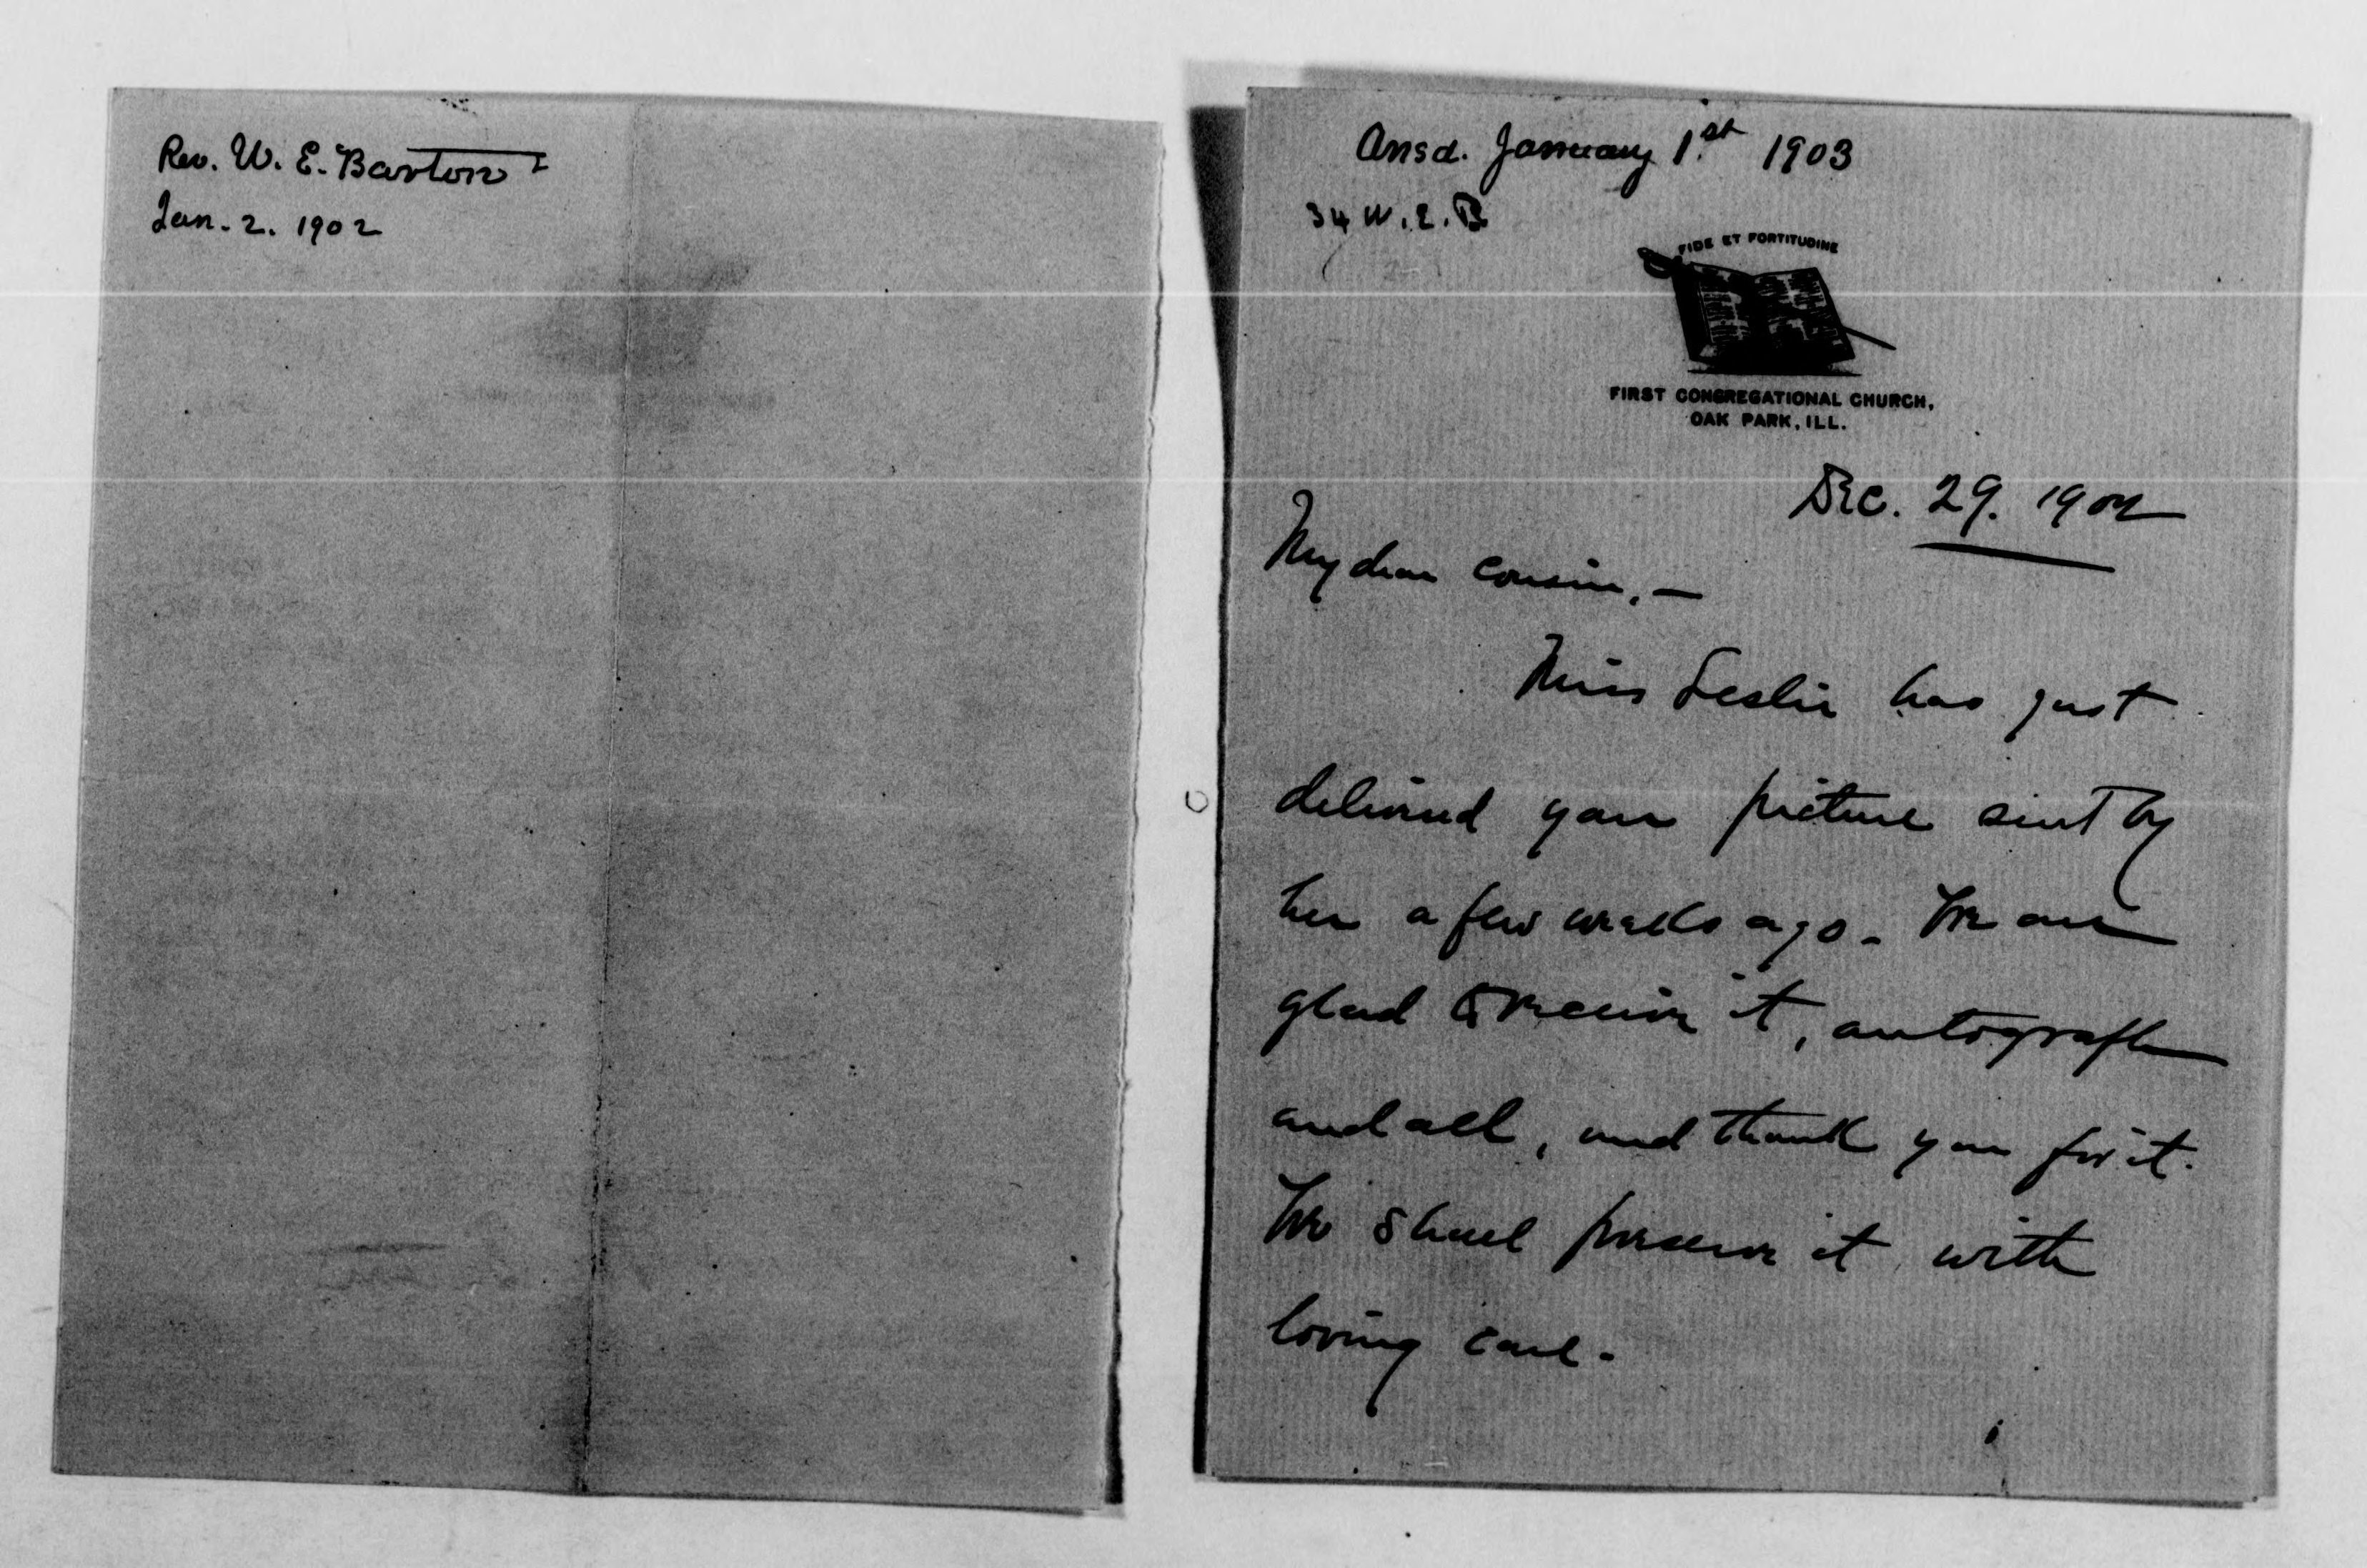 Rev. W. E. Barton
Jan. 2. 1902
Ansd. January 1st 1903
34 W. E. B
FIDE ET FORTITUDINE
FIRST CONGREGATIONAL CHURCH,
OAK PARK, ILL.
Dec. 29. 1902
My dear cousin, —
Miss Leslie has just
delivered your picture sent by
her a few weeks ago. We are
glad to receive it, autograph
and all, and thank you for it.
We shall preserve it with
loving care.